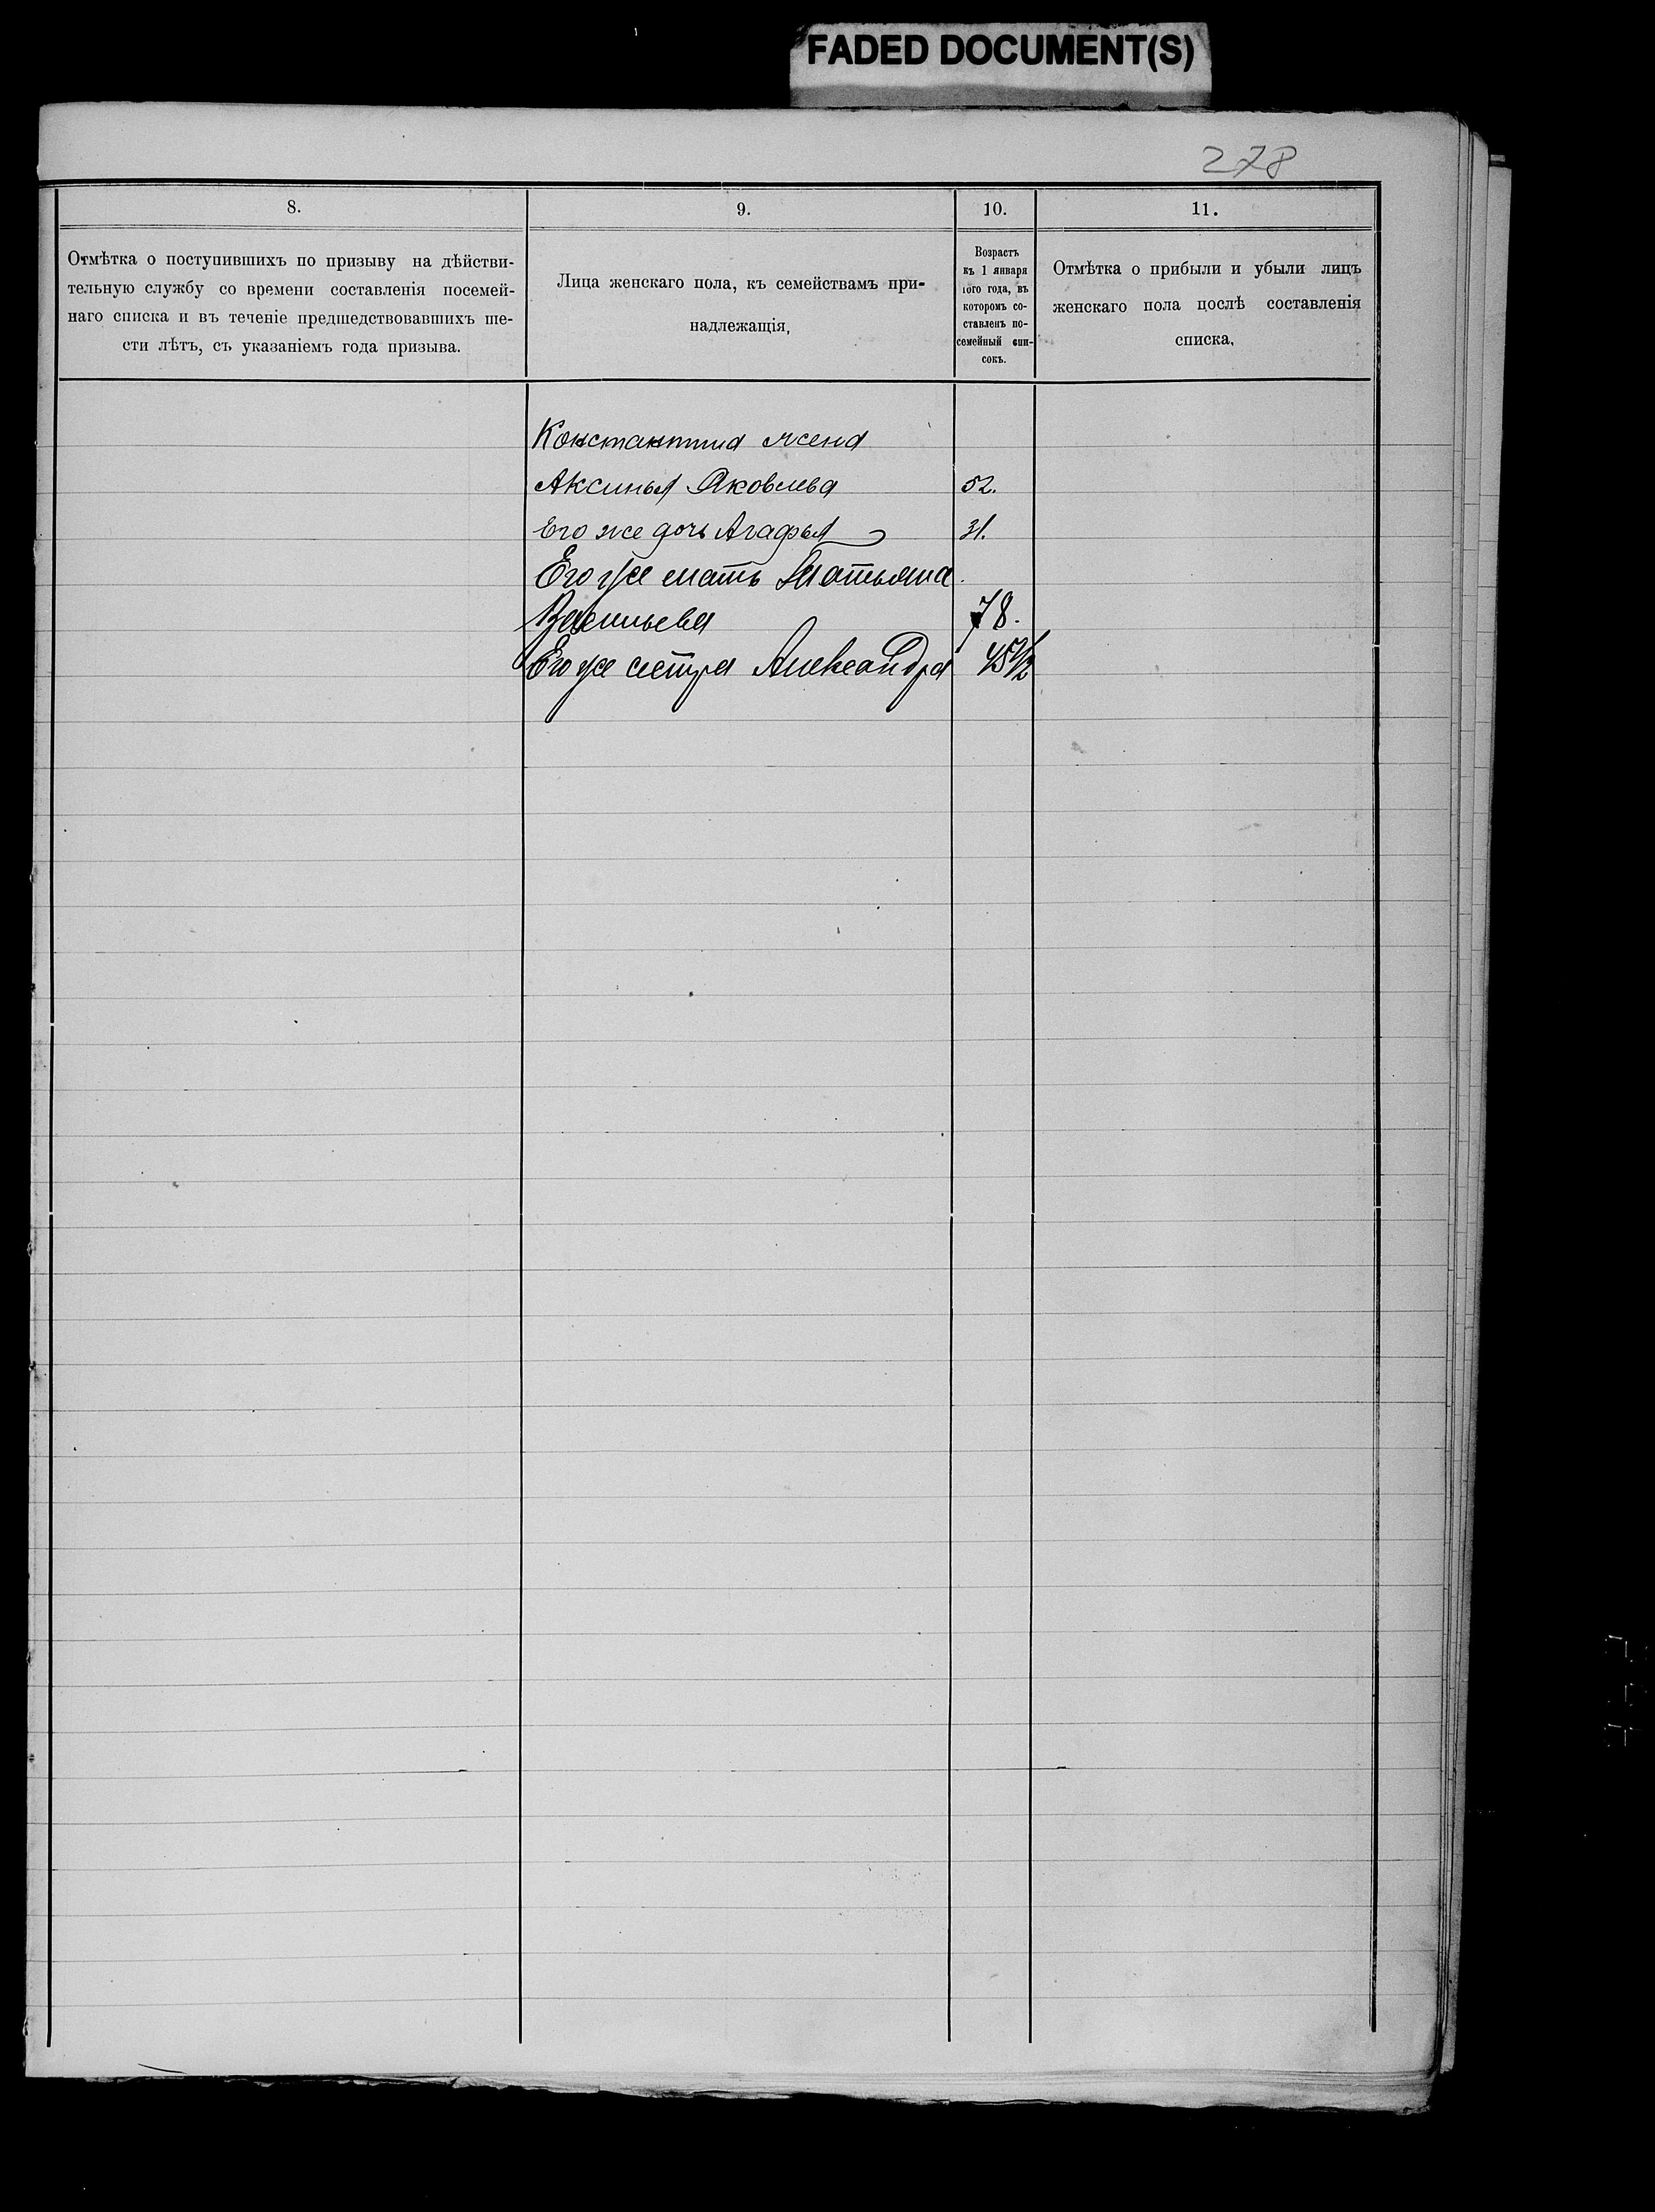 FADED DOCUMENT(S)
278
8.
9.
10.
11.
Отмѣтка о поступившихъ по призыву на дѣйстви-
тельную службу со времени составленія посемей-
наго списка и въ теченіе предшедствовавшихъ ше-
сти лѣтъ, съ указаніемъ года призыва.
Лица женскаго пола, къ семействамъ при-
надлежащія,
Возрастъ
къ 1 января
1ого года, въ
которомъ со-
ставленъ по-
семейный спи-
сокъ.
Отмѣтка о прибыли и убыли лицъ
женскаго пола послѣ составленія
списка,
Константина жена
Аксинья Яковлева 52.
Его же дочь Агафья 31.
Его же мать Татьяна
Васильева 78.
Его же сестра Александра 45 1/2